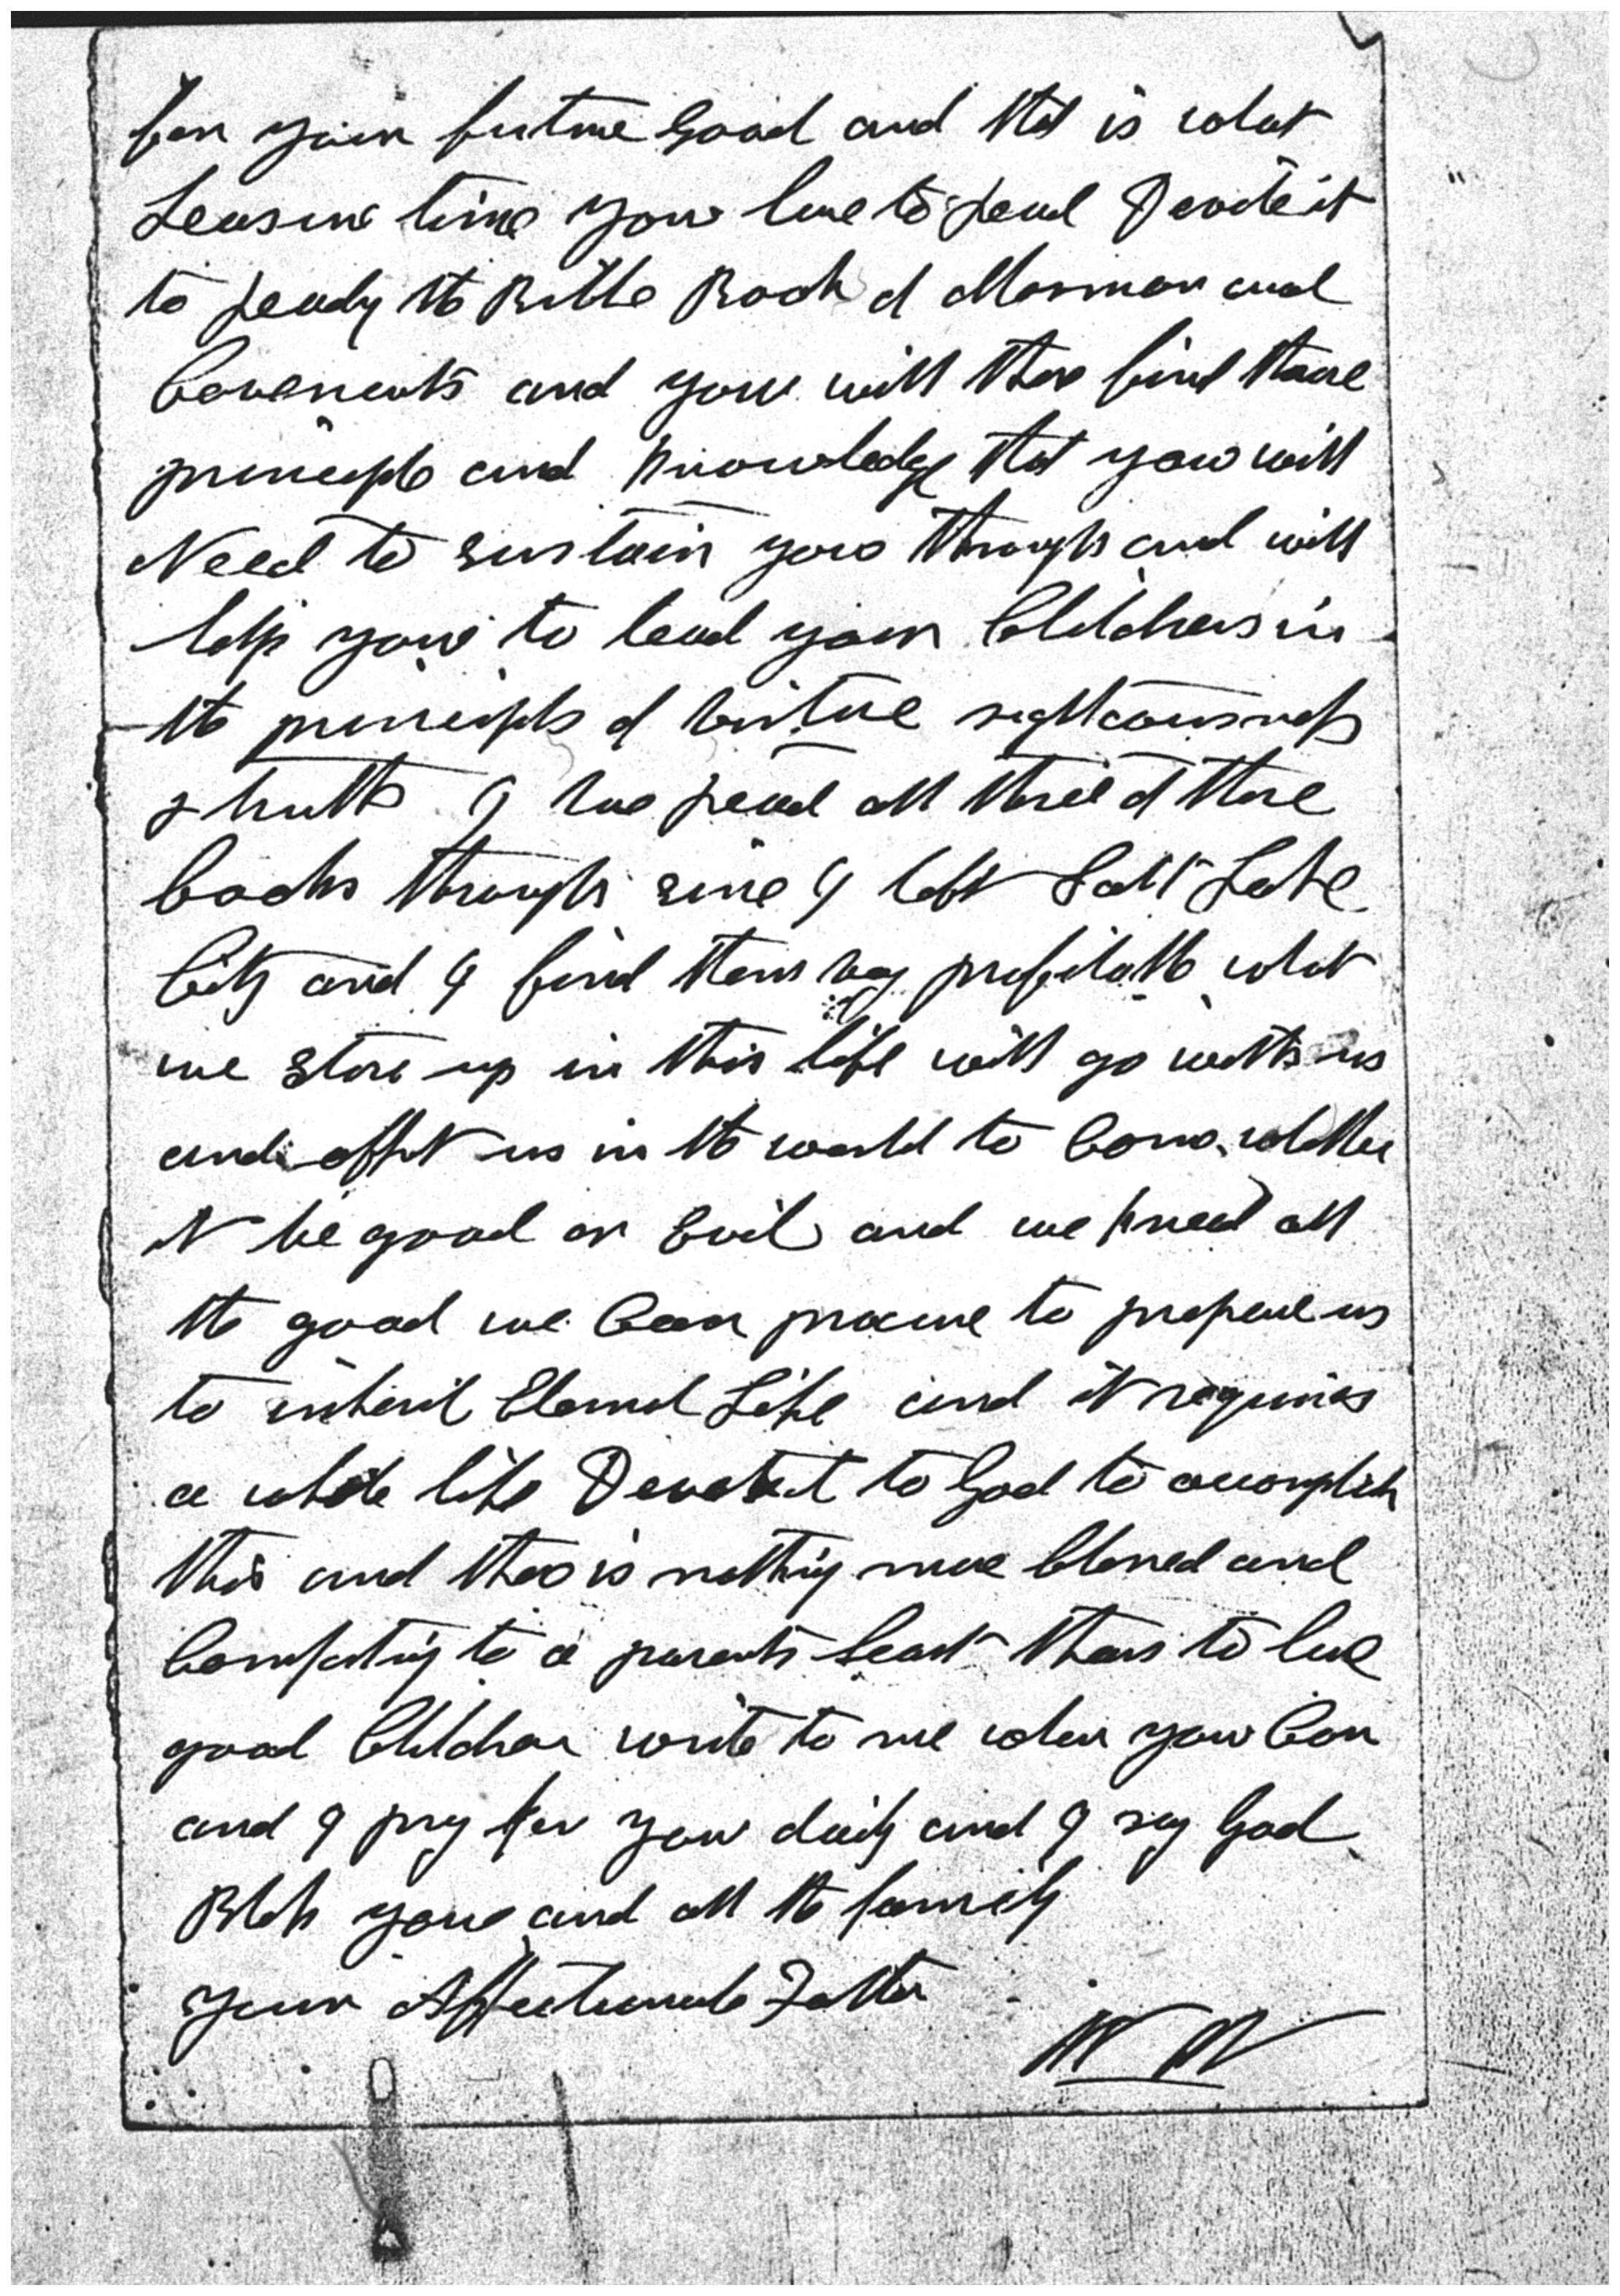 for your future Good and that is what
Leasure time you have to read Devote it
to reading the Bible Book of Mormon and
Covenants and you will there find those
principle and knowledge that you will
Need to sustain you through and will
help you to lead your Children in
the principles of virtue righteousness
& truth I have read all three of those
books through since I left Salt Lake
City and I find them very profitable what
we store up in this life will go with us
and affect us in the world to Come whether
it be good or Evil and we need all
the good we Can procure to prepare us
to inherit Eternal Life and it requires
a whole life Devoted to God to accomplish
this and there is nothing more blessed and
Comforting to a parents heart than to have
good Children write to me when you Can
and I pray for you daily and I say God
Bless you and all the family
your Affectionate Father
W W